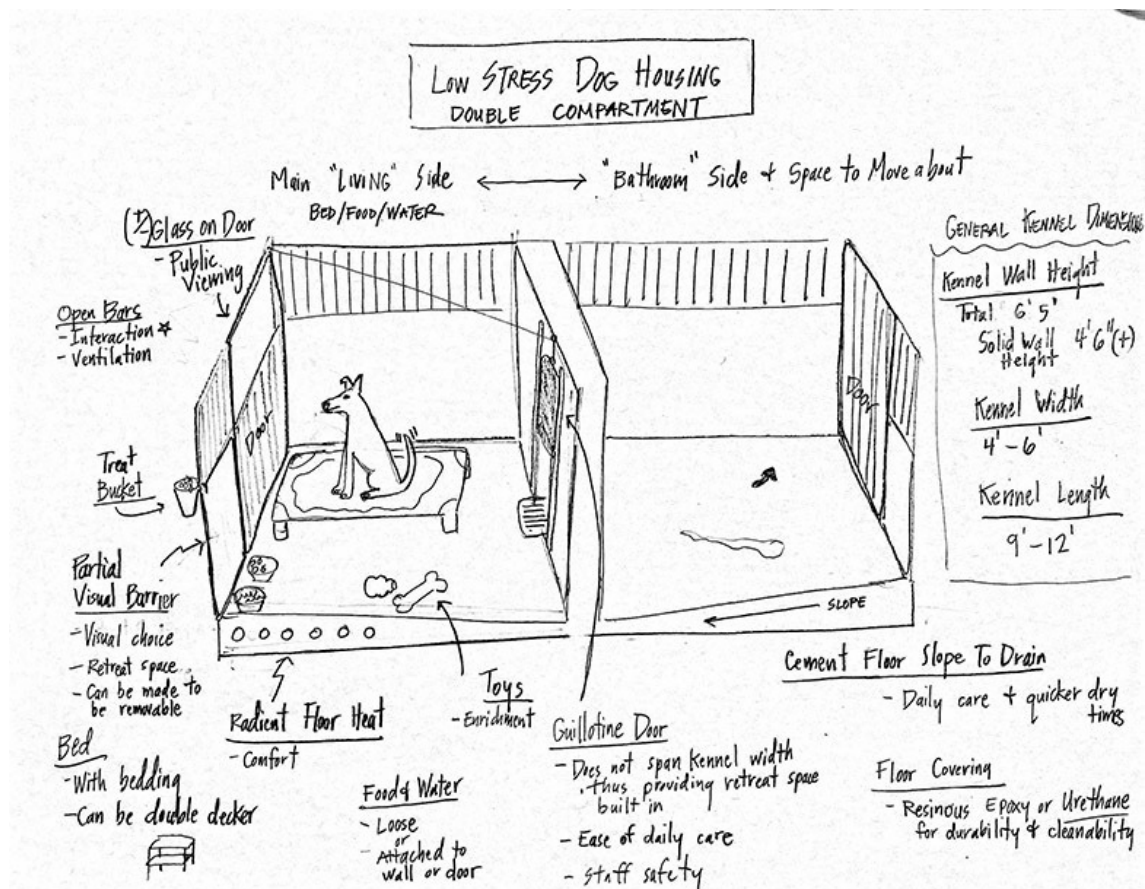 Low STRESS DOG HOUSING
DOUBLE COMPARTMENT
Main "LIVING" Side
BED/FOOD/WATER
"Bathroom" Side + Space to Move about
(+/-) Glass on Door
- Public Viewing
Open Bars
- Interaction ☆
- Ventilation
Door
Treat
Bucket
Partial
Visual Barrier
- Visual choice
- Retreat space
- Can be made to
be removable
Bed
- With bedding
- Can be double decker
Radient Floor Heat
- Comfort
Toys
- Enrichment
Food & Water
- Loose
or
- Attached to
wall or door
Guillotine Door
- Does not span kennel width
thus providing retreat space
built in
- Ease of daily care
- Staff safety
Door
SLOPE
Cement Floor Slope To Drain
- Daily care + quicker dry
times
Floor Covering
- Resinous Epoxy or Urethane
for durability & cleanability
GENERAL KENNEL DIMENSIONS
Kennel Wall Height
Total 6' 5"
Solid Wall 4' 6" (+)
Height
Kennel Width
4' - 6'
Kennel Length
9' - 12'